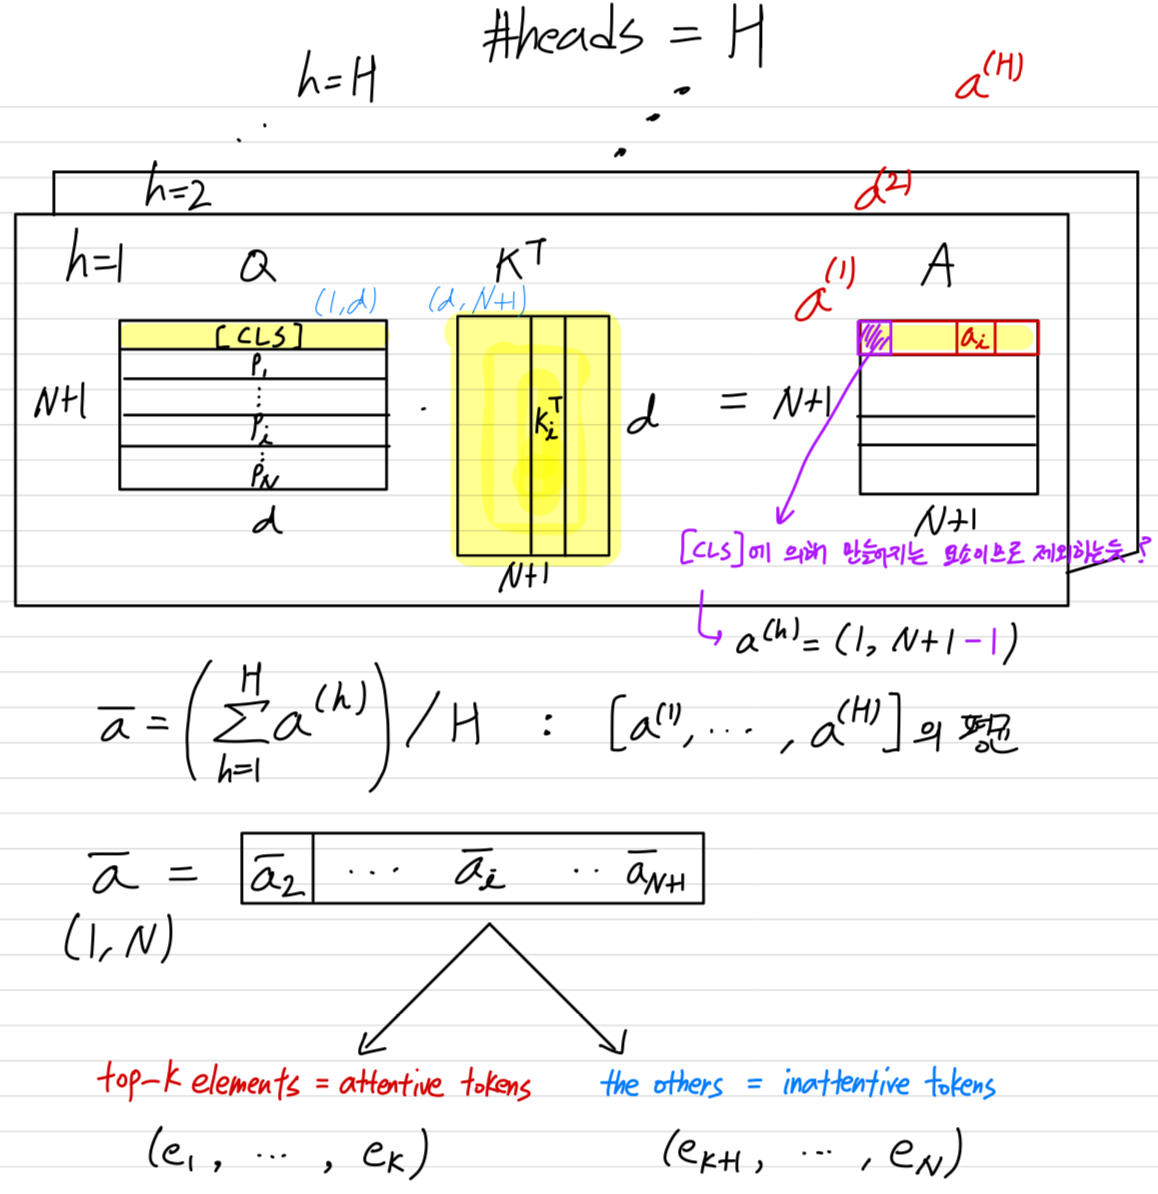 #heads = H
h=H
a^(H)
h=2
a^(2)
h=1 Q K^T a^(1) A
(1,d) (d,N+1)
[CLS] a_i
P_1
⋮
N+1 P_i · K_i^T d = N+1
⋮
P_N
d N+1 N+1
[CLS]에 의해 만들어지는 요소이므로 제외하는듯?
↳ a^(h) = (1, N+1-1)
ā = (∑_{h=1}^{H} a^(h)) / H : [a^(1), ⋯, a^(H)]의 평균
ā = ā_2 ⋯ ā_i ‥ ā_{N+1}
(1,N)
top-k elements = attentive tokens
the others = inattentive tokens
(e_1, ⋯, e_K)
(e_{K+1}, ⋯, e_N)